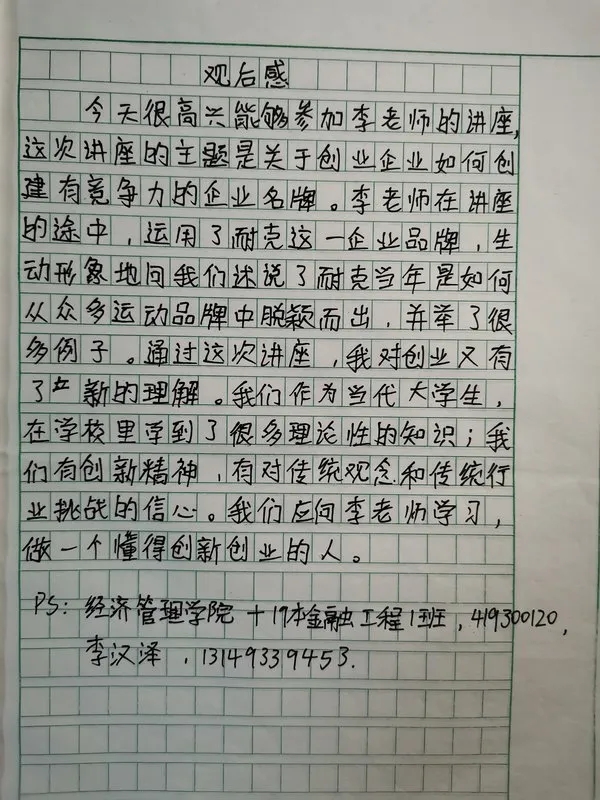 观后感
今天很高兴能够参加李老师的讲座,
这次讲座的主题是关于创业企业如何创
建有竟争力的企业名牌。李老师在讲座
的途中，运用了耐克这一企业品牌，生
动形象地问我们述说了耐克当年是如何
从众多运动品牌中脱颖而出，并举了很
多例子。通过这次讲座，我对创业又有
了 新的理解。我们作为当代大学生，
在学校里学到了很多理论性的知识；我
们有创新精神，有对传统观念和传统行
业挑战的信心。我们应向李老师学习，
做一个懂得创新创业的人。
PS: 经济管理学院 + 19本金融工程1班，419300120,
李汉泽，13149339453.